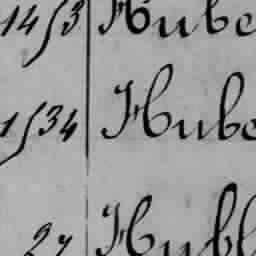 1453 Hube
1534 Hube
27 Hubl